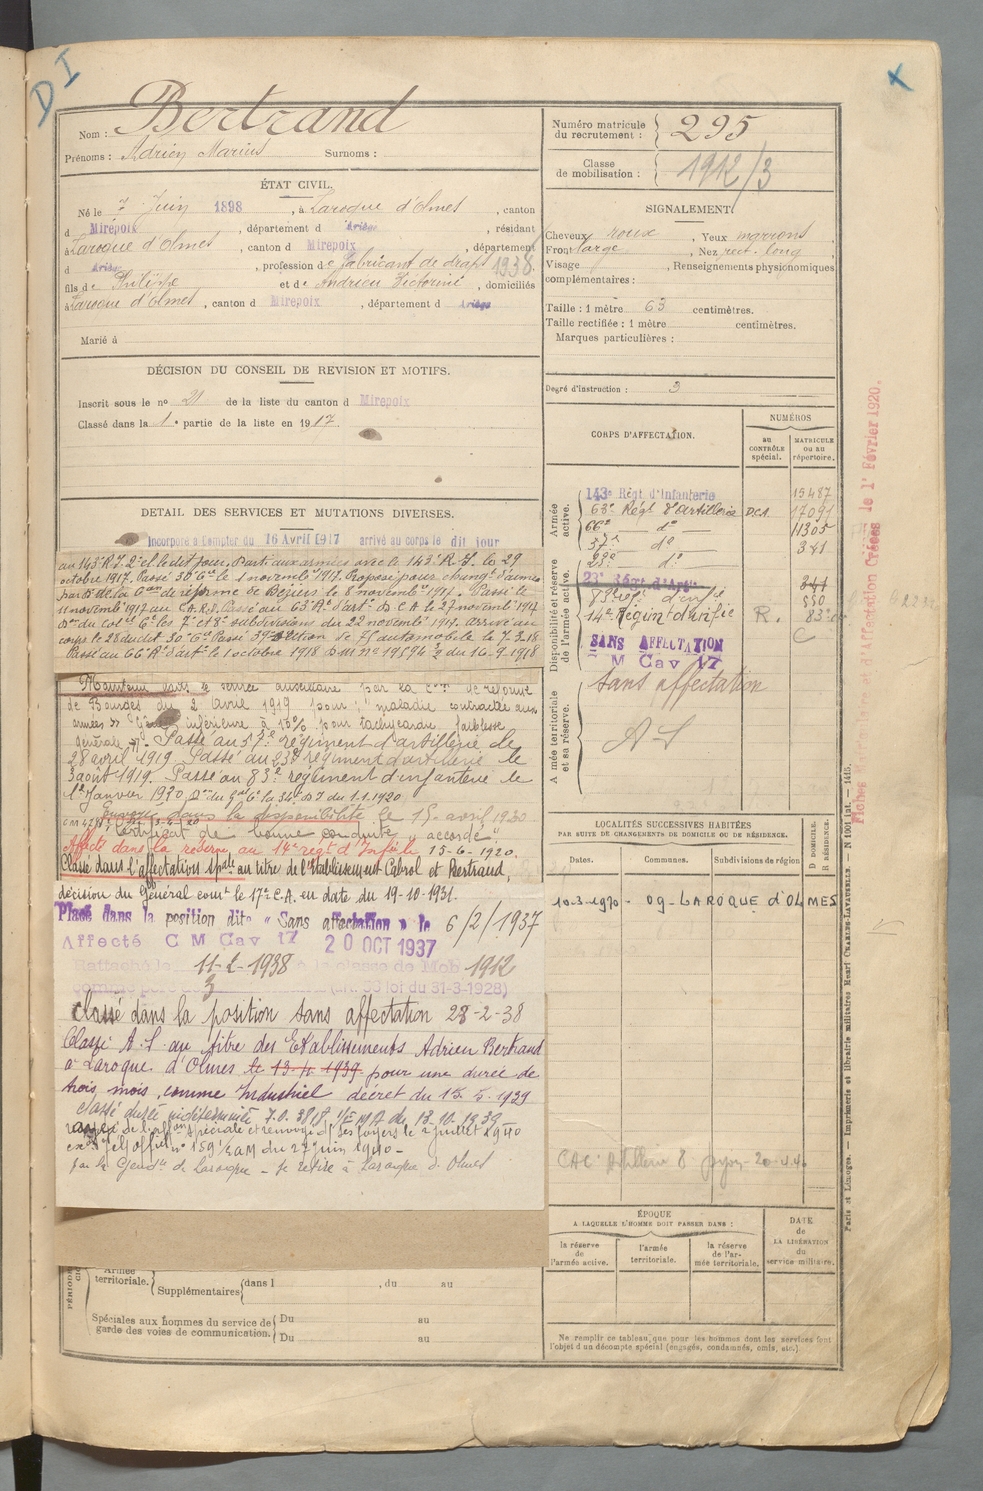 DI
X
Nom : Bertrand
Prénoms : Adrien Marius Surnoms :
Numéro matricule du recrutement : 295
Classe de mobilisation : 1912/3
ÉTAT CIVIL.
Né le 7 Juin 1898, à Laroque d'Olmes, canton
d Mirepoix, département d Ariège, résidant
à Laroque d'Olmes, canton d Mirepoix, département
d Ariège, profession de fabricant de draps 1938.
fils de Philippe et de Andrieu Victorine, domiciliés
à Laroque d'Olmes, canton d Mirepoix, département d Ariège
Marié à
SIGNALEMENT.
Cheveux roux, Yeux marrons
Front large, Nez rect. long
Visage , Renseignements physionomiques
complémentaires :
Taille : 1 mètre 63 centimètres.
Taille rectifiée : 1 mètre centimètres.
Marques particulières :
Degré d'instruction : 3
DÉCISION DU CONSEIL DE REVISION ET MOTIFS.
Inscrit sous le n° 21 de la liste du canton d Mirepoix
Classé dans la 1e partie de la liste en 1917.
DETAIL DES SERVICES ET MUTATIONS DIVERSES.
Incorporé à compter du 16 Avril 1917 arrivé au corps le dit jour
au 143e R.I. 2e cl. le dit jour. Parti aux armées avec le 143e R.I. le 29
octobre 1917. Passé 30e Gie le 1 novembre 1917. Proposé pour changt d'armes
par de la Con de réforme de Béziers le 8 novembre 1917. Passé le
novembre 1917 au C.A.R.D. Passé au 63e At d'art. D C A le 27 novembre 1917
Don du Col. Gl les 7e et 8e subdivisions du 22 novembre 1917. arrivé au
corps le 28 du dit 30e Gie Passé 39e Section de 75 automobile le 7.3.18
Passé au 66e At d'art. le 1 octobre 1918 D.M. no 19594 3/3 du 16.9.1918
Maintenu dans le service auxiliaire par la Con de réforme
de Bourges du 2 avril 1919 pour : "maladie contractée aux
armées" inférieure à 10% pour tachycardie, faiblesse
générale". Passé au 57e régiment d'artillerie le
28 avril 1919. Passé au 23e régiment d'artillerie le
3 août 1919. Passé au 83e régiment d'infanterie le
1er Janvier 1920 Don du Gal Ct la 34e D.I du 1.1.1920
Envoyé dans la disponibilité le 15 avril 1920
Certificat de bonne conduite "accordé"
Affecté dans la réserve au 14e régt d'Infie le 15-6-1920.
Classé dans l'affectation spale au titre de l'Etablissement Cabrol et Bertrand,
décision du Général comt le 17e C.A. en date du 19-10-1931.
Placé dans la position dite "Sans affectation" le 6/2/1937
Affecté C M Cav 17 20 OCT 1937
Rattaché le 11-2-1938 à la classe de Mob 1912
comme père de 3 (Art. 58 loi du 31-3-1928)
Classé dans la position sans affectation 28-2-38
Classé A.S au titre des Etablissements Adrien Bertrand
à Laroque d'Olmes le 13-4-1939 pour une durée de
trois mois, comme Industriel décret du 15.5.1939
Classé durée indéterminée J.O. 3818 1/EMA du 13.10.1939
rayé de l'affon spéciale et renvoyé dans ses foyers le 2 juillet 1940
n° 159 3/AM du 27 juin 1940 -
par la Gendie de Laroque - se retire à Laroque d'Olmes
CORPS D'AFFECTATION.
NUMÉROS
au CONTRÔLE spécial.
MATRICULE ou au répertoire.
Armée active.
143e Régt. d'Infanterie 15487
63e Régt d'artillerie DCA 17091
66e — do — 11305
57e — do 341
23e do
Disponibilité et réserve de l'armée active.
23e Régt d'Art. 341
83e régt d'infie 550
14e Région d'infie R. 83
SANS AFFECTATION C
M Cav 17
Sans affectation
Armée territoriale et sa réserve.
A-S
LOCALITÉS SUCCESSIVES HABITÉES
PAR SUITE DE CHANGEMENTS DE DOMICILE OU DE RÉSIDENCE.
Dates. Communes. Subdivisions de région D DOMICILE. R RÉSIDENCE.
10.3.1970- 09-LAROQUE d'OLMES
CAC Artillerie 8 20-4-40
ÉPOQUE
A LAQUELLE L'HOMME DOIT PASSER DANS :
la réserve de l'armée active.
l'armée territoriale.
la réserve de l'armée territoriale.
DATE de LA LIBÉRATION du service militaire.
Armée territoriale. Supplémentaires dans l , du au
Spéciales aux hommes du service de garde des voies de communication. Du au
Du au
Ne remplir ce tableau que pour les hommes dont les services font
l'objet d'un décompte spécial (engagés, condamnés, omis, etc.).
Fiches Matricule et d'Affectation Créées le 1r Février 1920.
Paris et Limoges. — Imprimerie et librairie militaires Henri CHARLES-LAVAUZELLE. — N° 1001 int. — 1415.